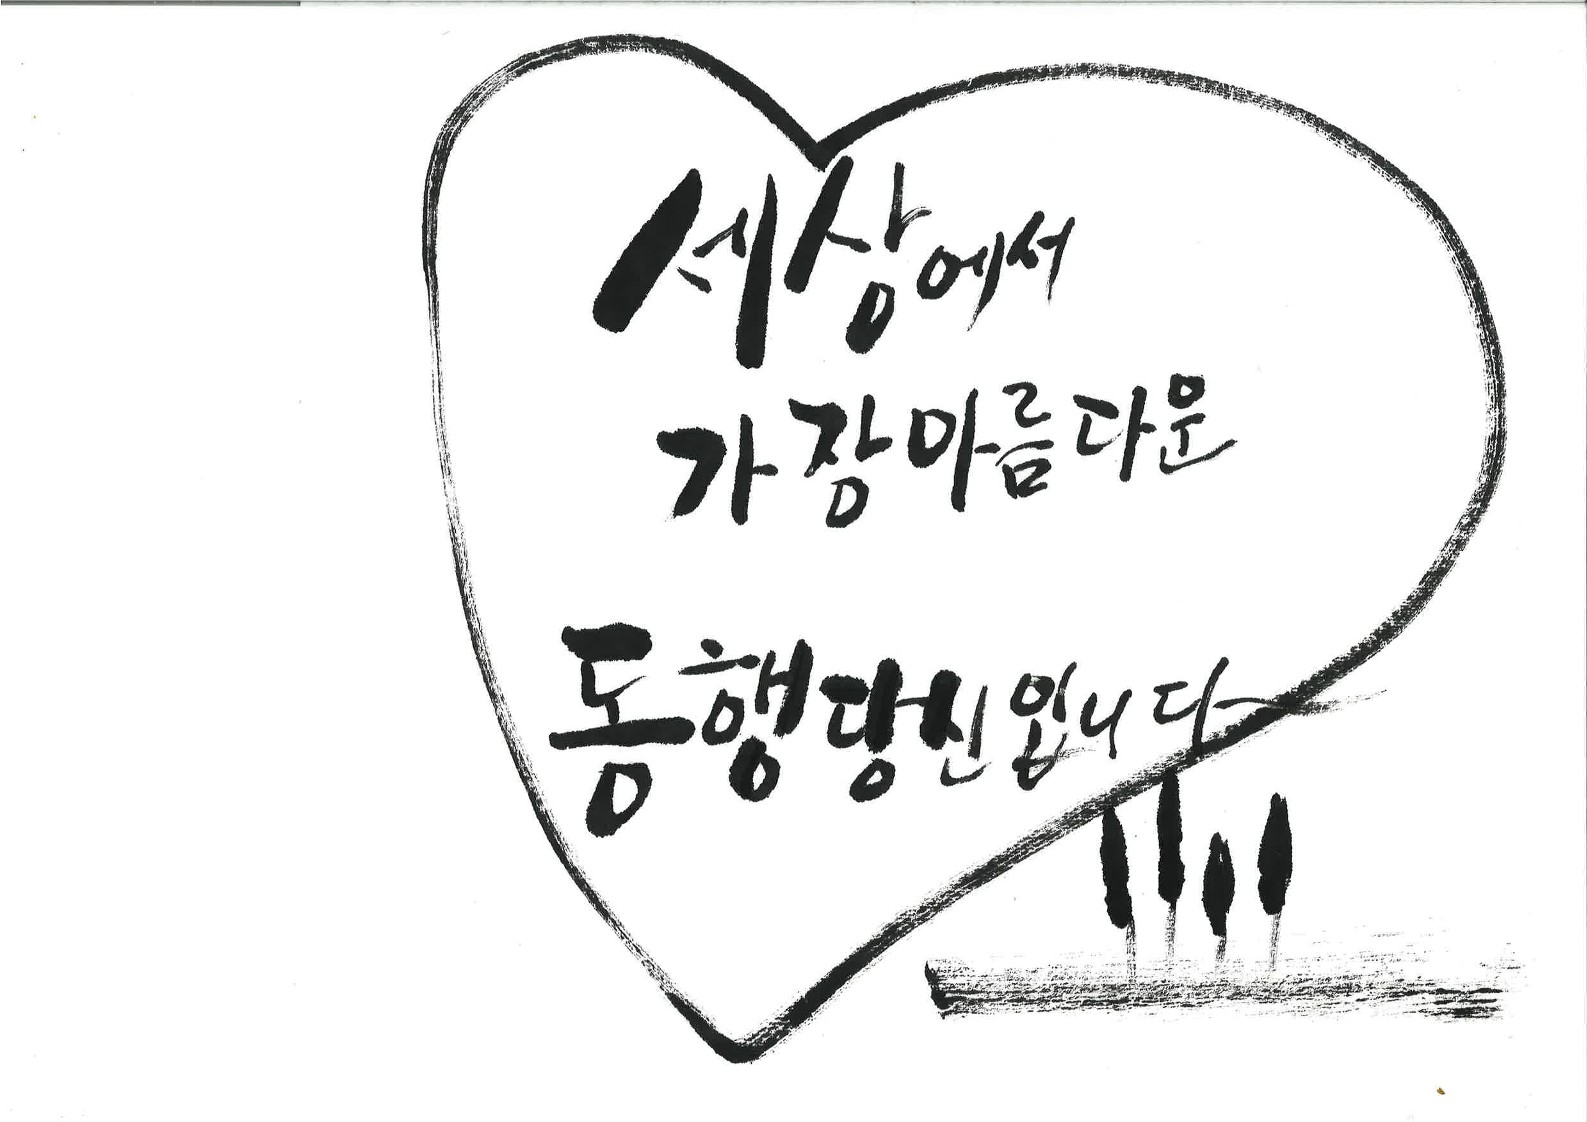 세상에서
가장 아름다운
동행 당신입니다